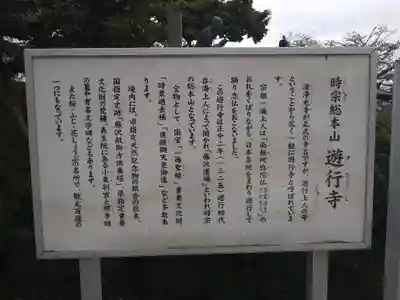 時宗総本山 遊行寺
清浄光寺が正式の寺名ですが、遊行上人の寺
ということから広く一般に遊行寺と呼ばれていま
す。
宗祖一遍上人は、「南無阿弥陀仏
お札をくばりながら、日本各地をまわり遊行して
踊り念仏をおこないました。
この遊行寺は正中二年（一三二五）遊行四代
呑海上人によって開かれ「藤沢道場」といわれ時宗
の総本山となっています。
宝物として、国宝「一遍聖絵」重要文化財
「時衆過去帳」、「後醍醐天皇御像」など多数あ
ります。
境内には、市指定天然記念物の銀杏の巨木、
国指定史跡「藤沢敵御方供養塔」、県指定重要
文化財の梵鐘、長生院にある小栗判官と照手姫
の墓や有名文学碑などもあります。
また桜・ふじ・花しょうぶの名所で、観光百選の
一つにもなっています。